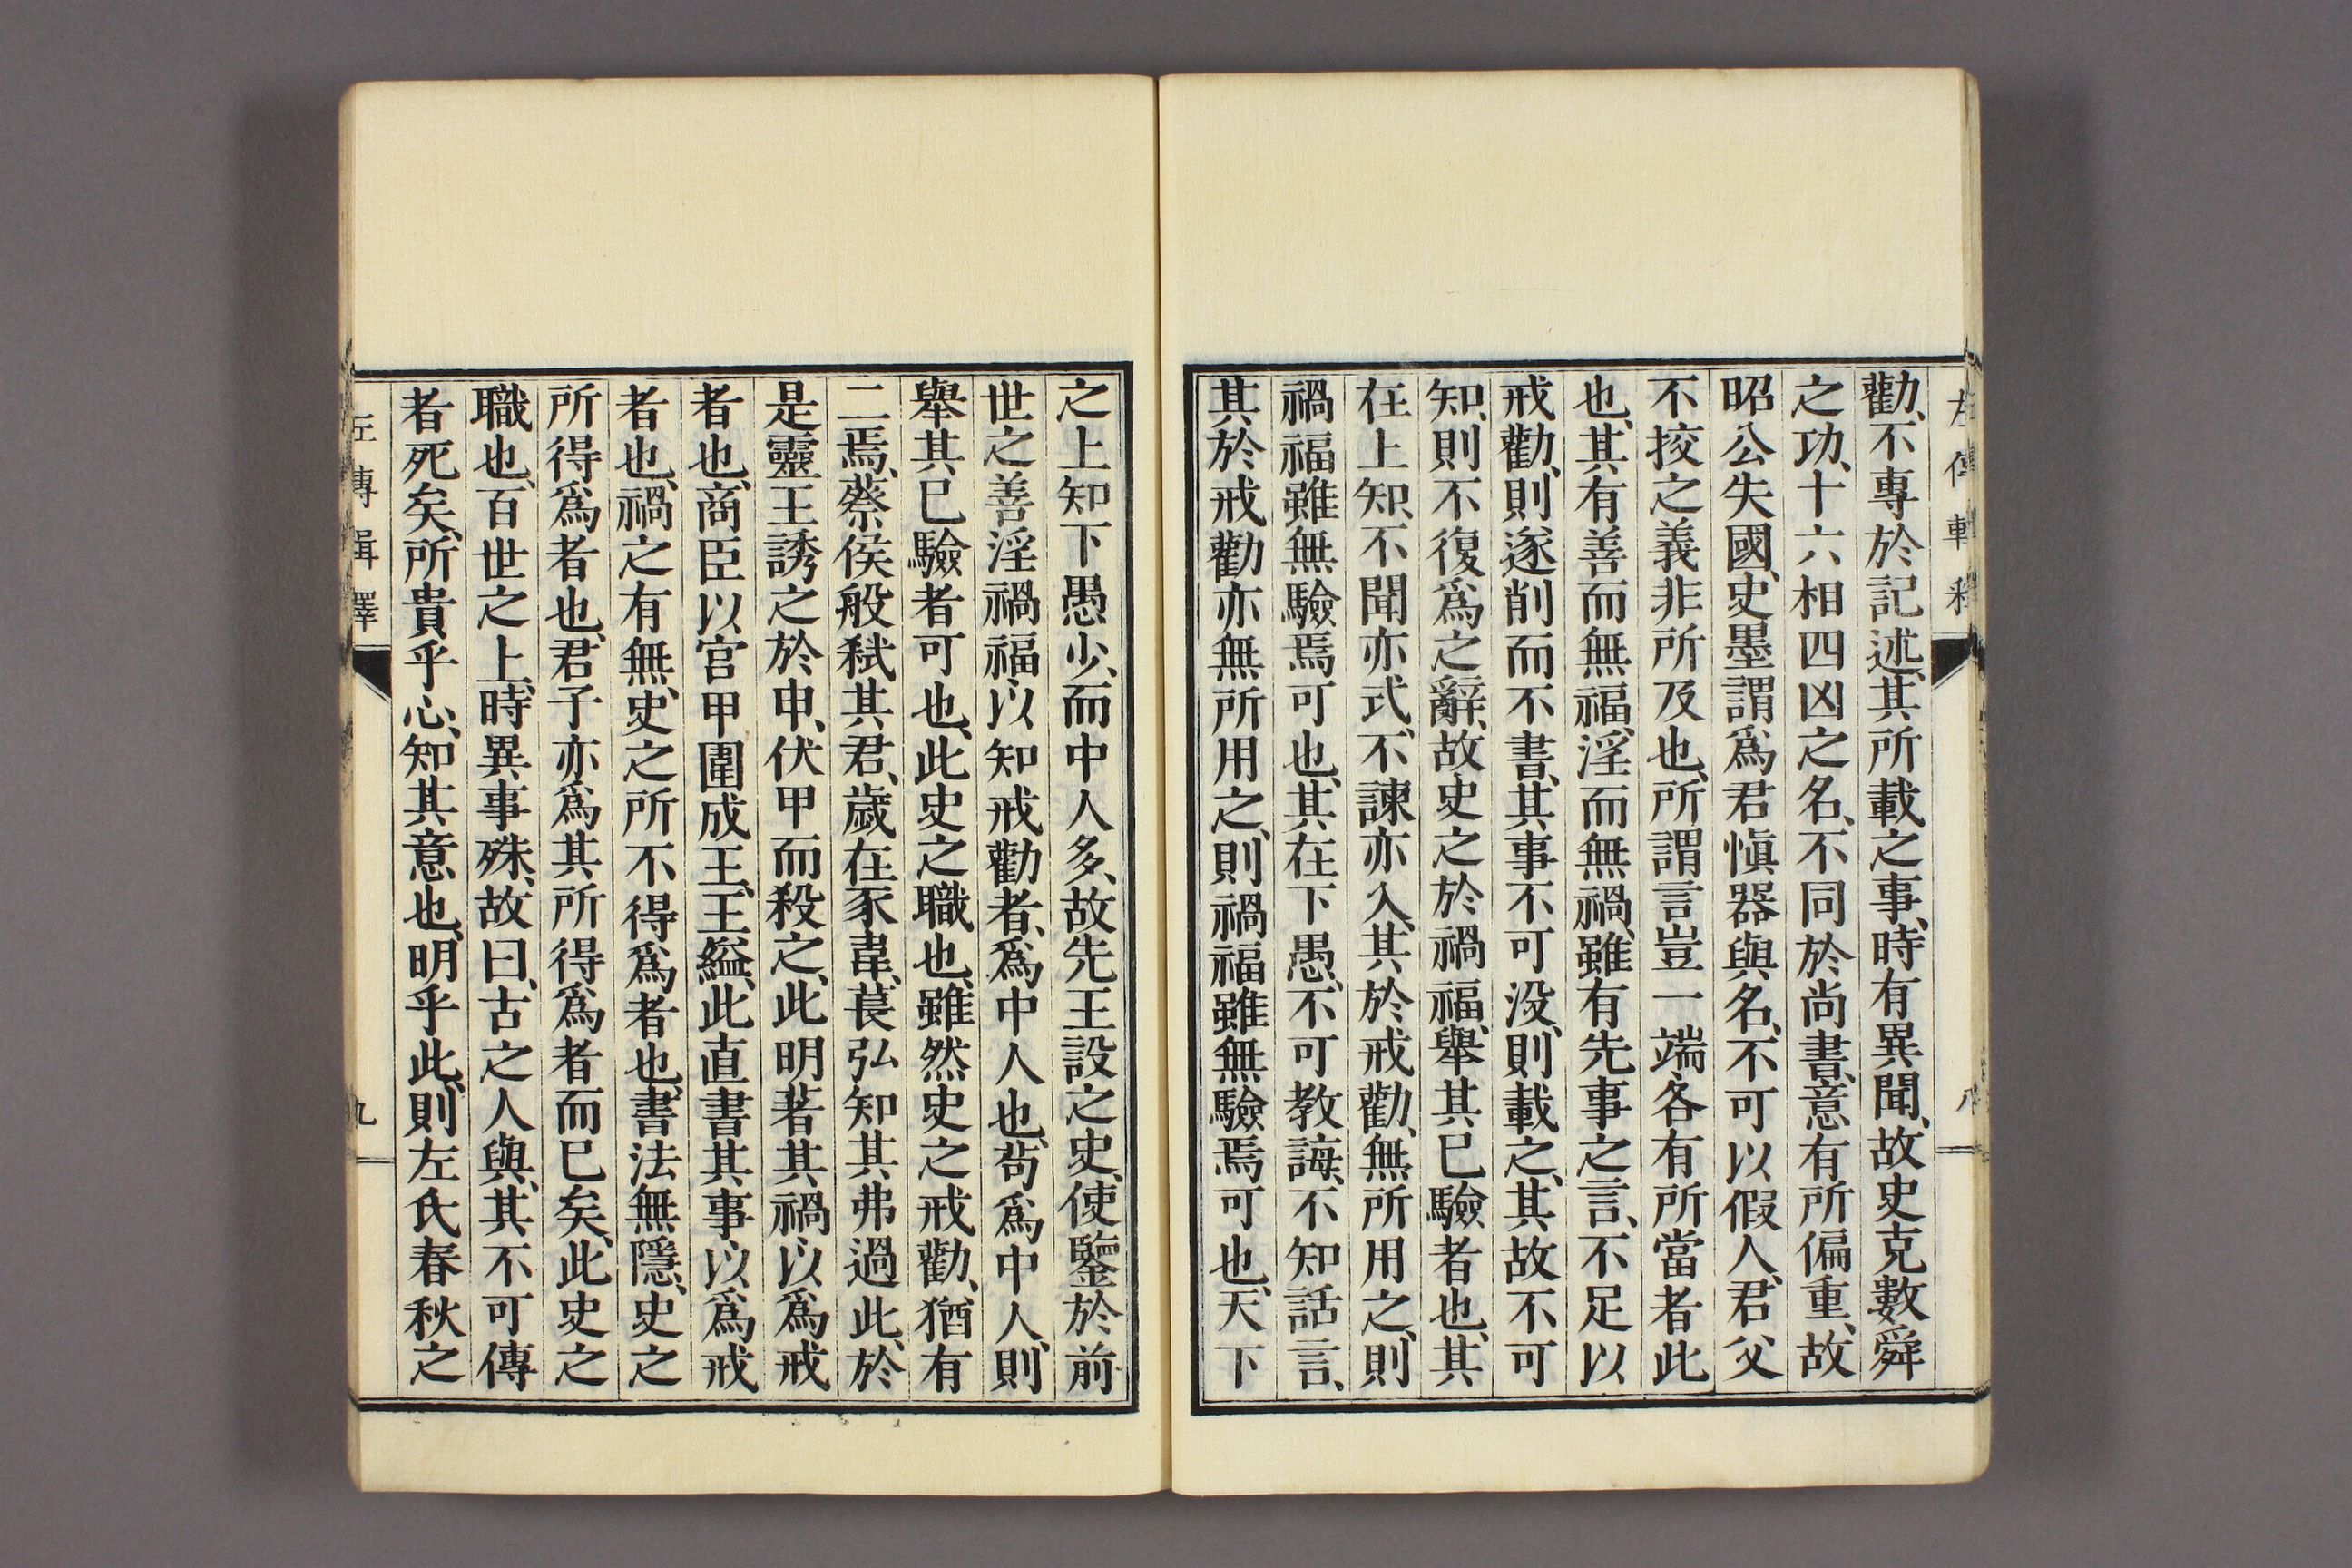 勸、不專於記述、其所載之事、時有異聞、故史克數舜
之功、十六相四凶之名、不同於尚書、意有所偏重、故
昭公失國、史墨謂爲君愼器與名、不可以假人、君父
不挍之義非所及也、所謂言豈一端、各有所當者此
也、其有善而無福、淫而無禍、雖有先事之言、不足以
戒勸、則逐削而不書、其事不可没、則載之、其故不可
知、則不復爲之辭、故史之於禍福、舉其已驗者也、其
在上知、不聞亦式、不諫亦入、其於戒勸、無所用之、則
禍福雖無驗焉可也、其在下愚、不可教誨、不知話言、
其於戒勸亦無所用之、則禍福雖無驗焉可也、天下
之上知下愚少、而中人多、故先王設之史、使鑒於前
世之善淫禍福以知戒勸者、爲中人也、苟爲中人、則
舉其已驗者可也、此史之職也、雖然史之戒勸、猶有
二焉、蔡侯般弑其君、歲在豕韋、萇弘知其弗過此、於
是靈王誘之於申、伏甲而殺之、此明著其禍以爲戒
者也、商臣以宮甲圍成王、王縊、此直書其事以爲戒
者也、禍之有無、史之所不得爲者也、書法無隱、史之
所得爲者也、君子亦爲其所得爲者而已矣、此史之
職也、百世之上、時異事殊、故曰、古之人與、其不可傳
者死矣、所貴乎心、知其意也、明乎此、則左氏春秋之
左傳輯釋
八
左傳輯釋
九